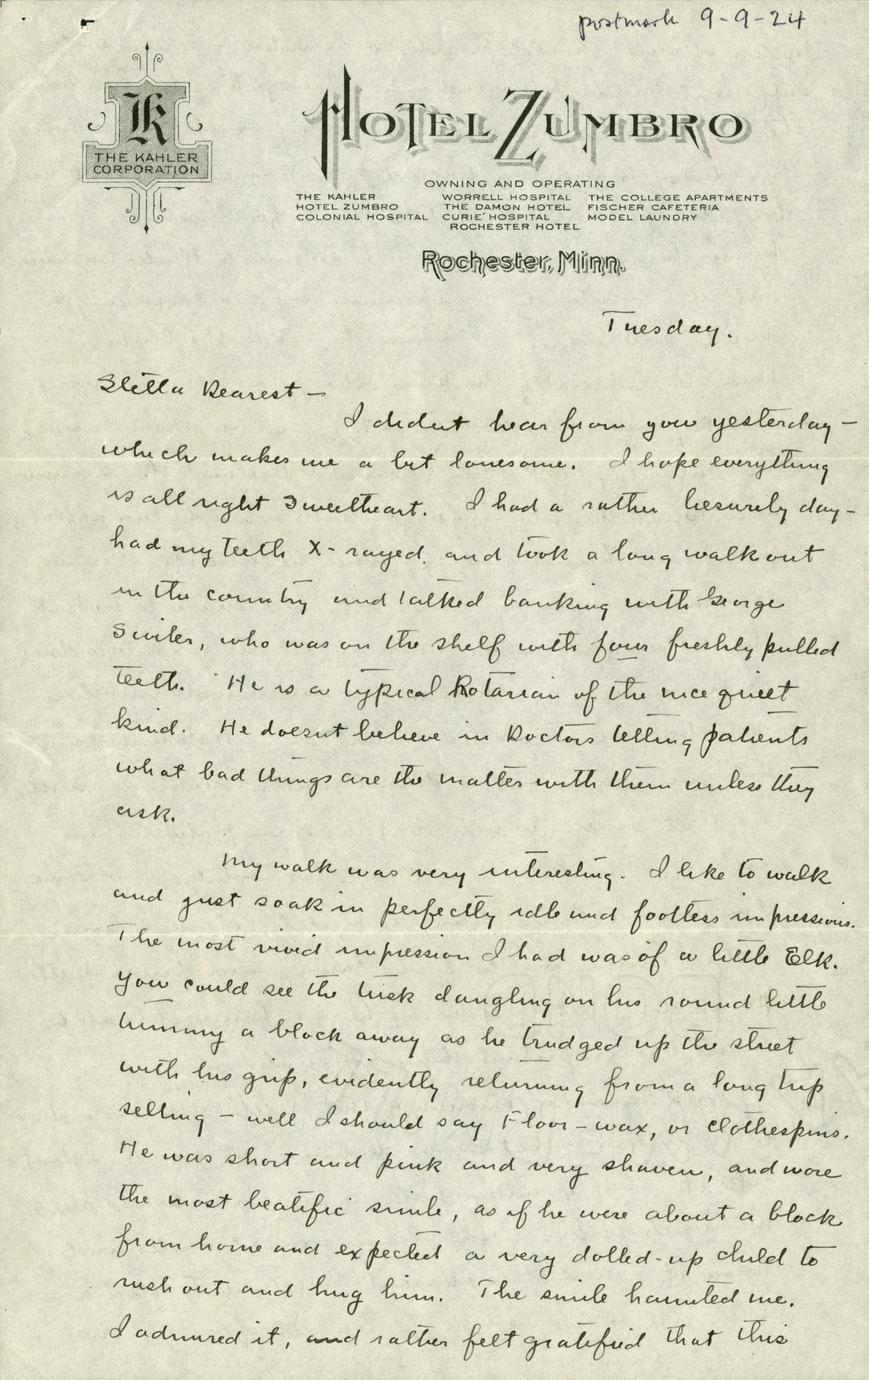 postmark 9-9-24
K
THE KAHLER
CORPORATION
HOTEL ZUMBRO
OWNING AND OPERATING
THE KAHLER WORRELL HOSPITAL THE COLLEGE APARTMENTS
HOTEL ZUMBRO THE DAMON HOTEL FISCHER CAFETERIA
COLONIAL HOSPITAL CURIE HOSPITAL MODEL LAUNDRY
ROCHESTER HOTEL
Rochester, Minn.
Tuesday.
Stella Dearest —
I didnt hear from you yesterday —
which makes me a bit lonesome. I hope everything
is all right Sweetheart. I had a rather liesurely day —
had my teeth X-rayed, and took a long walk out
in the country and talked banking with George
who was on the shelf with four freshly pulled
teeth. He is a typical Rotarian of the nice quiet
kind. He doesnt believe in Doctors telling patients
what bad things are the matter with them unless they
ask.
My walk was very interesting. I like to walk
and just soak in perfectly idle and footless impressions.
The most vivid impression I had was of a little Elk.
You could see the tusk dangling on his round little
tummy a block away as he trudged up the street
with his grip, evidently returning from a long trip
selling — well I should say Floor-wax, or clothespins.
He was short and pink and very shaven, and wore
the most beatific smile, as if he were about a block
from home and expected a very dolled-up child to
rush out and hug him. The smile haunted me.
I admired it, and rather felt gratified that this